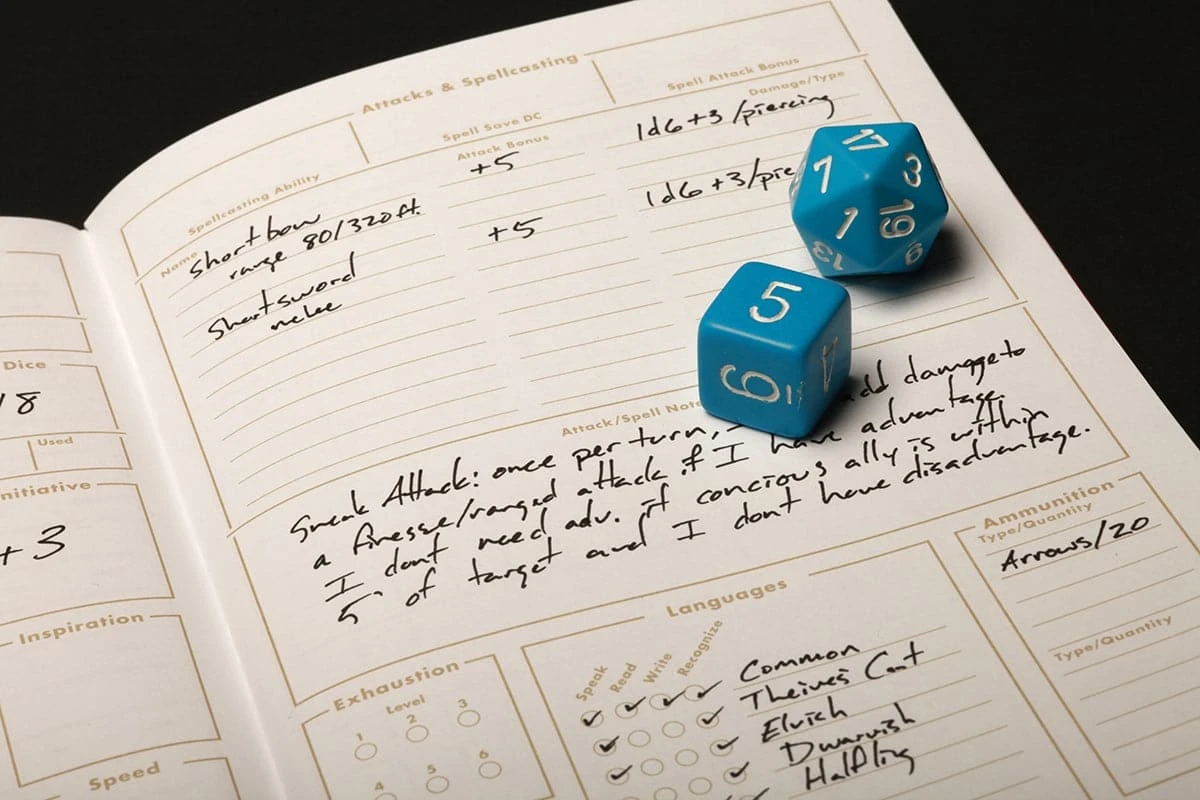 Attacks & Spellcasting
Spellcasting Ability
Spell Save DC
Spell Attack Bonus
Name
Attack Bonus
Damage/Type
Shortbow
range 80/320 ft.
+5
1d6+3/piercing
Shortsword
melee
+5
1d6+3/pie
17
7
3
1
19
13
9
5
6
Attack/Spell Note
Sneak Attack: once per turn, add damage to
a finesse/ranged attack if I have advantage.
I dont need adv. if concious ally is within
5' of target and I dont have disadvantage.
Dice
8
Used
nitiative
+3
Inspiration
Speed
Exhaustion
Level
1
2
3
4
5
6
Languages
Speak
Read
Write
Recognize
Common
Theives Cant
Elvish
Dwarvish
Halfling
Ammunition
Type/Quantity
Arrows/20
Type/Quantity